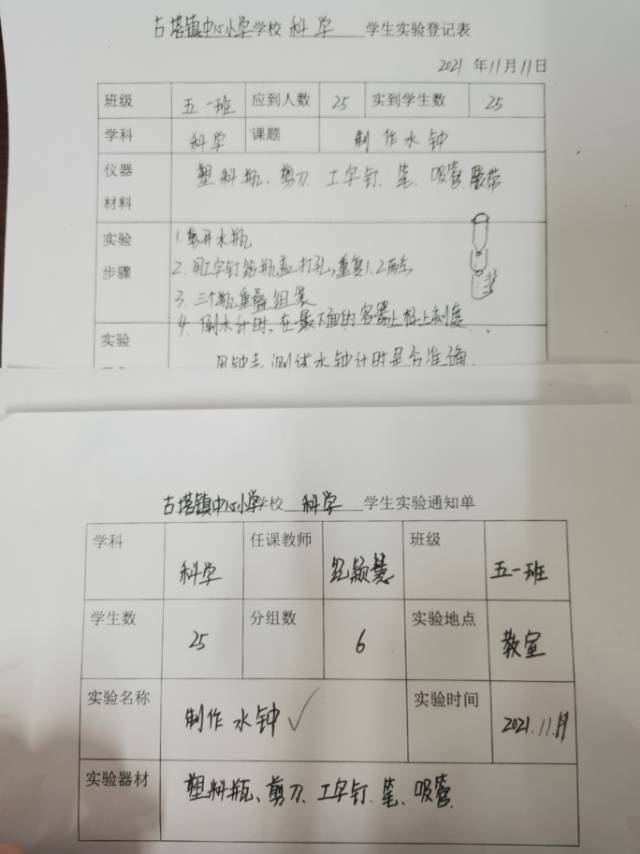 古塔镇中心小学学校 科学 学生实验登记表
2021 年11月11日
班级 五一班 应到人数 25 实到学生数 25
学科 科学 课题 制作水钟
仪器 塑料瓶、剪刀、工字钉、笔、吸管、胶带
材料
实验 1.剪开水瓶
步骤 2.用工字钉给瓶盖打孔,重复1.2两点
3.三个瓶重叠组装
4.倒水计时,在最下面的容器上标上刻度
实验 用钟表,测试水钟计时是否准确
古塔镇中心小学学校 科学 学生实验通知单
学科 科学 任课教师 颖慧 班级 五一班
学生数 25 分组数 6 实验地点 教室
实验名称 制作水钟 实验时间 2021.11.月
实验器材 塑料瓶、剪刀、工字钉、笔、吸管